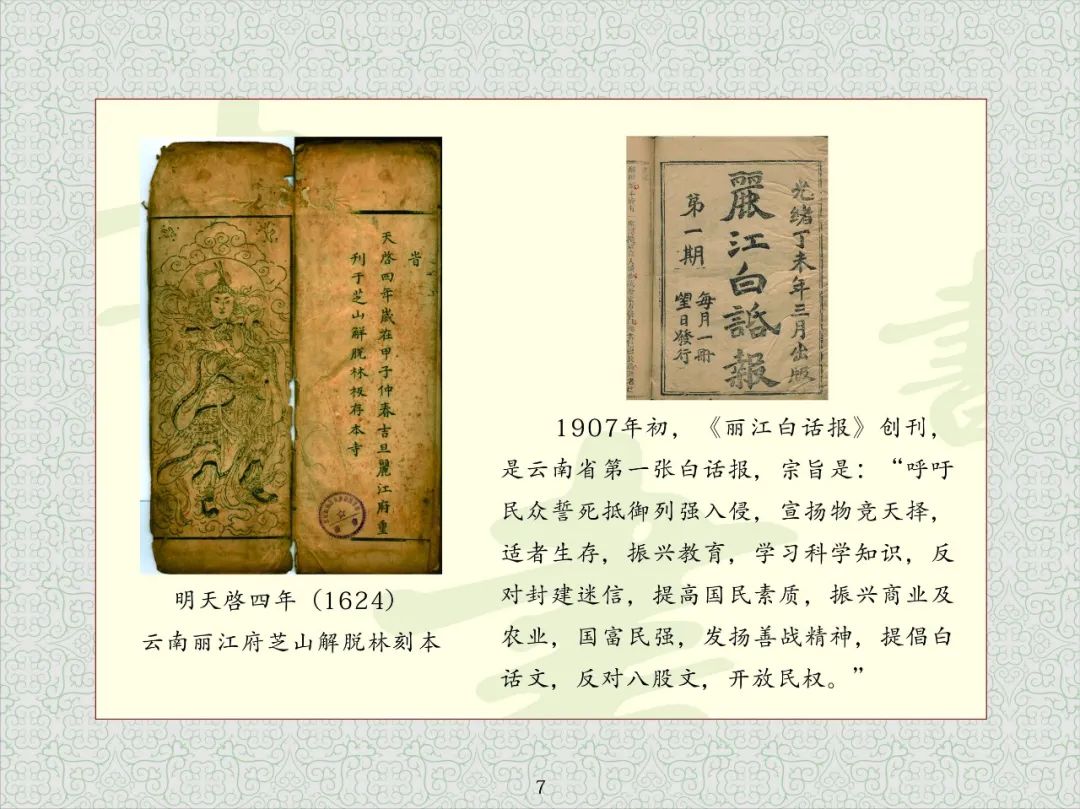 省
天啓四年歲在甲子仲春吉旦麗江府重
刊于芝山解脫林板存本寺
明天啓四年（1624）
云南丽江府芝山解脱林刻本
光緒丁未年三月出版
麗江白話報
第一期
每月一冊
望日發行
1907年初，《丽江白话报》创刊，
是云南省第一张白话报，宗旨是：“呼吁
民众誓死抵御列强入侵，宣扬物竞天择，
适者生存，振兴教育，学习科学知识，反
对封建迷信，提高国民素质，振兴商业及
农业，国富民强，发扬善战精神，提倡白
话文，反对八股文，开放民权。”
7